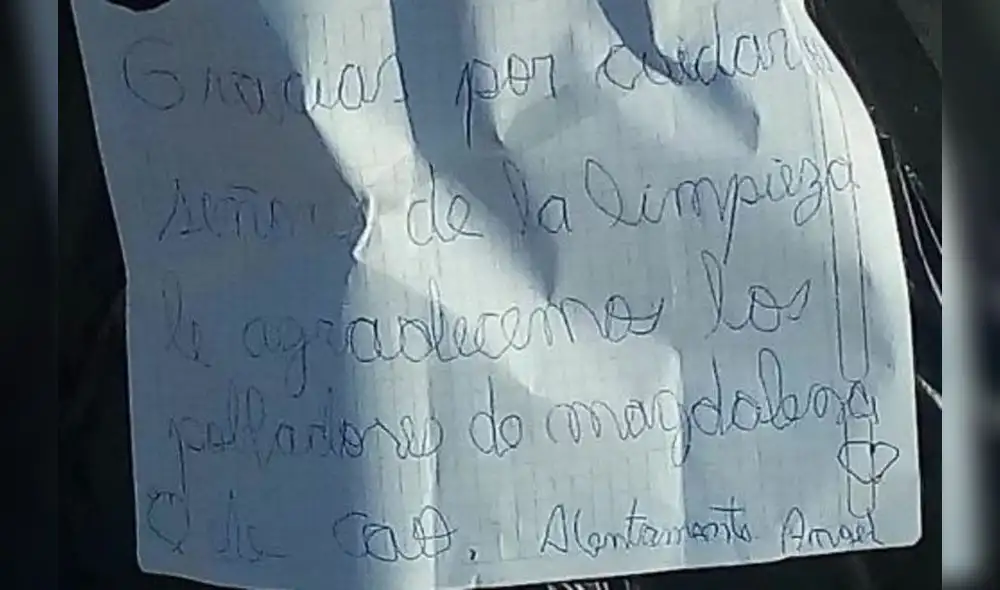 Gracias por cuidar
señores de la limpieza
le agradecemos los
pobladores de magdalena
de cao. Atentamente Angel